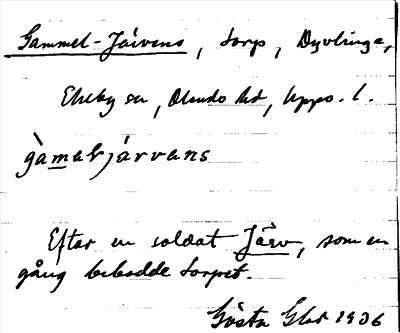 Gammel-Järvens, torp, Dyvlinge,
Ekeby sn, Olands hd, Upps. l.
gàmeljärvans
Efter en soldat Järv, som en
gång bebodde torpet.
Gösta 1936